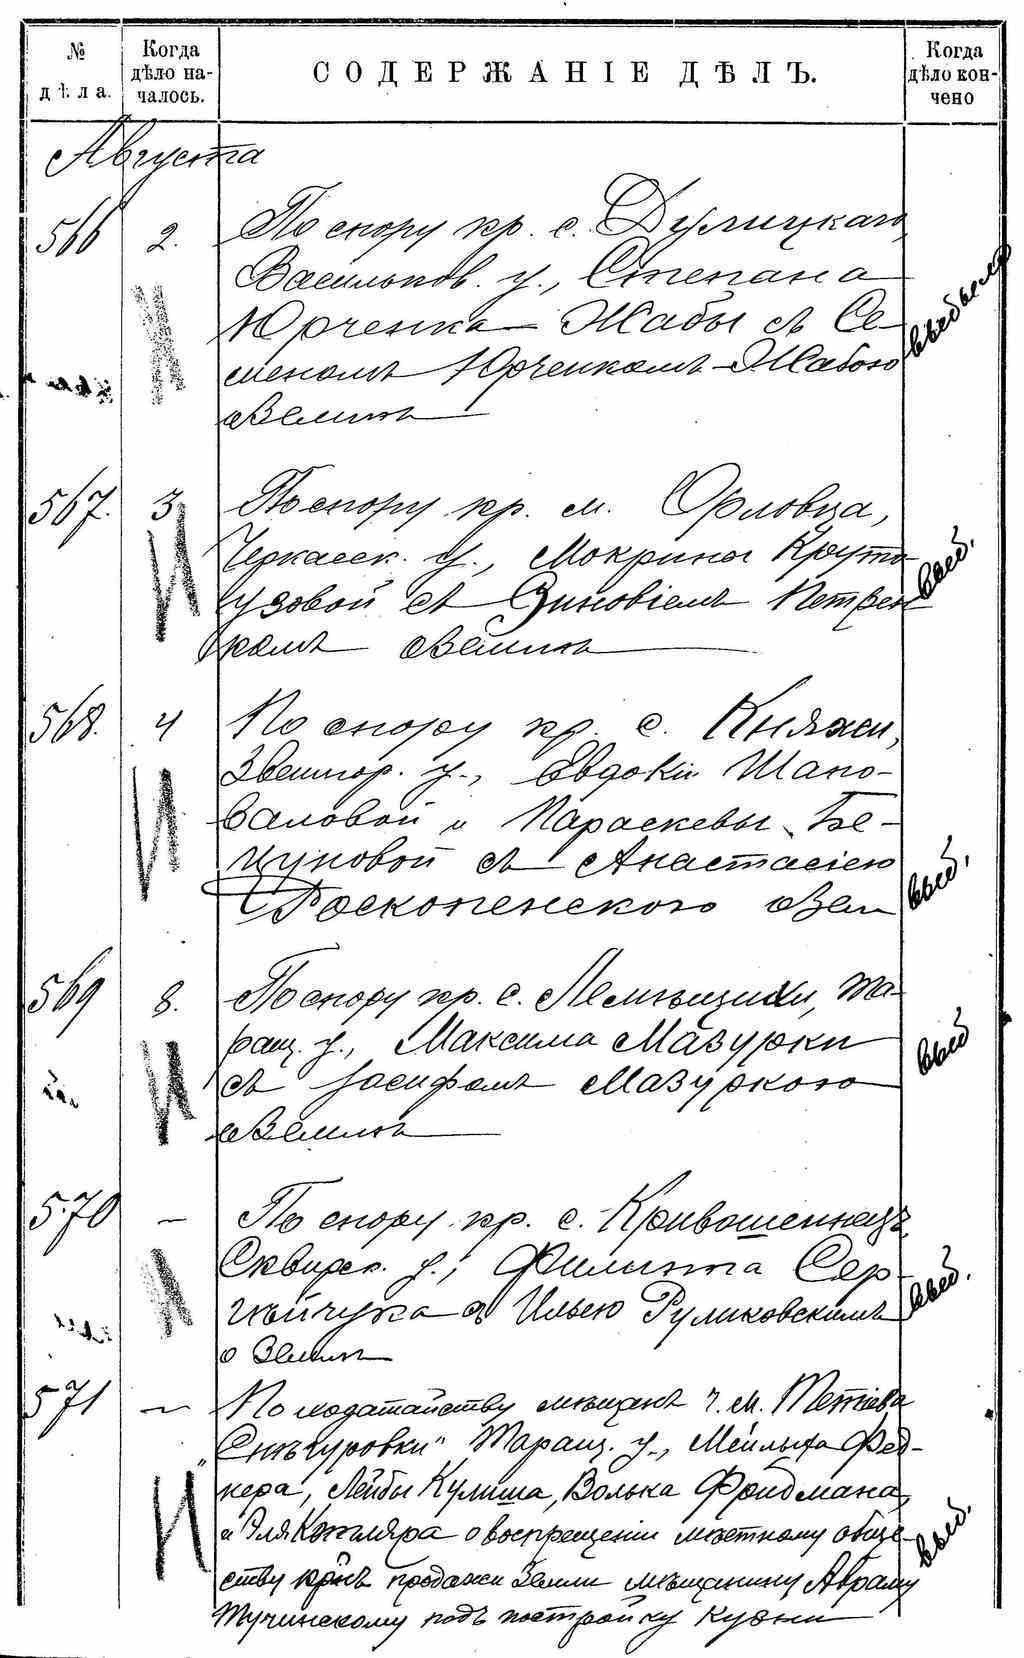 № дѣла.
Когда дѣло началось.
СОДЕРЖАНІЕ ДѢЛЪ.
Когда дѣло кончено
Августа
566 2. По спору кр. с. Дулицкаго,
Васильков. у., Степана
Юрченка-Жабы съ Се-
меномъ Юрченкомъ-Жабою
о землѣ
567. 3 По спору кр. м. Орловца,
Черкасск. у., Мокрины Круто-
узовой съ Зиновіемъ Петрен
комъ о землѣ
выб.
568. 4 По спору кр. с. Княжи,
Звенигор. у., Евдокіи Шапо-
валовой и Параскевы Бе-
цуновой съ Анастасіею
Росконенскою о зем
выб.
569 8. По спору кр. с. Лемѣщихи, Та-
ращ. у., Максима Мазурки
съ Іосифомъ Мазуркою
о землѣ
выб
570 — По спору кр. с. Кривошеинецъ,
Сквирск. у., Филиппа Сер-
гѣйчука съ Ильею Руликовскимъ
о землѣ
выб.
571 — По ходатайству мѣщанъ ч. м. Тетіева
„Снѣгуровки" Таращ. у., Мейлыха Фед-
нера, Лейбы Кулиша, Волька Фридмана,
и Эля Котляра о воспрещеніи мѣстному обще-
ству крнъ продажи земли мѣщанину Абраму
Тучинскому подъ постройку кузни
выб.
И
И
И
И
И
И